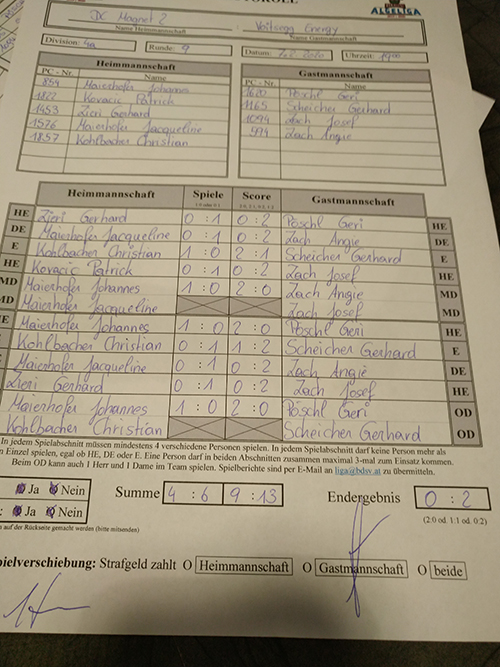 ALGELIGA
DC Magnet 2
Voitsegg Energy
Name Heimmannschaft
Name Gastmannschaft
Division: 4a
Runde: 9
Datum:
Uhrzeit: 19:00
Heimmannschaft
Gastmannschaft
PC - Nr. Name
PC - Nr. Name
854 Maierhofer Johannes
1620 Pöschl Geri
1822 Kovacic Patrick
1165 Scheicher Gerhard
1453 Zieri Gerhard
1094 Zach Josef
1576 Maierhofer Jacqueline
994 Zach Angie
1857 Kohlbacher Christian
Heimmannschaft Spiele Score Gastmannschaft
HE Zieri Gerhard 0 : 1 0 : 2 Pöschl Geri HE
DE Maierhofer Jacqueline 0 : 1 0 : 2 Zach Angie DE
E Kohlbacher Christian 1 : 0 2 : 1 Scheicher Gerhard E
HE Kovacic Patrick 0 : 1 0 : 2 Zach Josef HE
MD Maierhofer Johannes 1 : 0 2 : 0 Zach Angie MD
MD Maierhofer Jacqueline Zach Josef MD
HE Maierhofer Johannes 1 : 0 2 : 0 Pöschl Geri HE
E Kohlbacher Christian 0 : 1 1 : 2 Scheicher Gerhard E
Maierhofer Jacqueline 0 : 1 0 : 2 Zach Angie DE
Zieri Gerhard 0 : 1 0 : 2 Zach Josef HE
Maierhofer Johannes 1 : 0 2 : 0 Pöschl Geri OD
Kohlbacher Christian Scheicher Gerhard OD
In jedem Spielabschnitt müssen mindestens 4 verschiedene Personen spielen. In jedem Spielabschnitt darf keine Person mehr als
n Einzel spielen, egal ob HE, DE oder E. Eine Person darf in beiden Abschnitten zusammen maximal 3-mal zum Einsatz kommen.
Beim OD kann auch 1 Herr und 1 Dame im Team spielen. Spielberichte sind per E-Mail an liga@bdsv.at zu übermitteln.
Ja Nein Summe 4 : 6 9 : 13 Endergebnis 0 : 2
: Ja Nein
(2:0 od. 1:1 od. 0:2)
auf der Rückseite gemacht werden (bitte mitsenden)
pielverschiebung: Strafgeld zahlt O Heimmannschaft O Gastmannschaft O beide